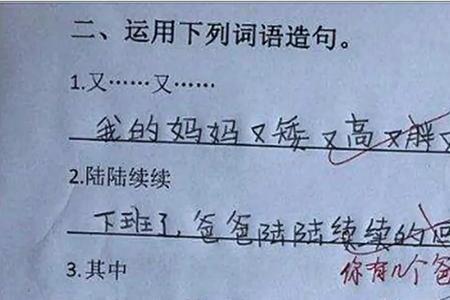 二、运用下列词语造句。
1.又……又……
我的妈妈又矮又高又胖又
2.陆陆续续
下班了,爸爸陆陆续续的回
3.其中
你有几个爸